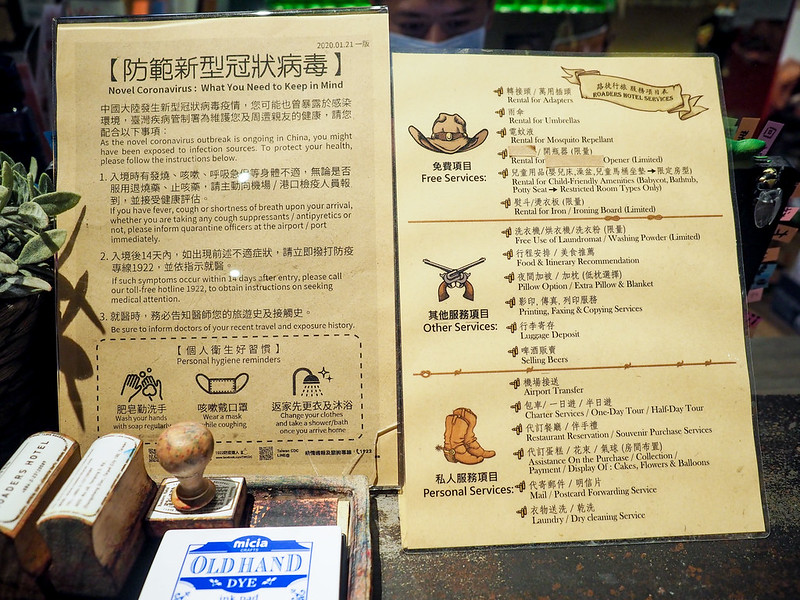 2020.01.21 一版
【防範新型冠狀病毒】
Novel Coronavirus : What You Need to Keep in Mind
中國大陸發生新型冠狀病毒疫情，您可能也曾暴露於感染
環境，臺灣疾病管制署為維護您及周遭親友的健康，請您
配合以下事項：
As the novel coronavirus outbreak is ongoing in China, you might
have been exposed to infection sources. To protect your health,
please follow the instructions below.
1. 入境時有發燒、咳嗽、呼吸急促等身體不適，無論是否
服用退燒藥、止咳藥，請主動向機場／港口檢疫人員報
到，並接受健康評估。
If you have fever, cough or shortness of breath upon your arrival,
whether you are taking any cough suppressants / antipyretics or
not, please inform quarantine officers at the airport / port
immediately.
2. 入境後14天內，如出現前述不適症狀，請立即撥打防疫
專線1922，並依指示就醫。
If such symptoms occur within 14 days after entry, please call
our toll-free hotline 1922, to obtain instructions on seeking
medical attention.
3. 就醫時，務必告知醫師您的旅遊史及接觸史。
Be sure to inform doctors of your recent travel and exposure history.
【 個人衛生好習慣 】
Personal hygiene reminders
肥皂勤洗手
Wash your hands
with soap regularly
咳嗽戴口罩
Wear a mask
while coughing
返家先更衣及沐浴
Change your clothes
and take a shower/bath
once you arrive home
Taiwan CDC
1922
路徒行旅 服務項目表
ROADERS HOTEL SERVICES
免費項目
Free Services:
轉接頭 / 萬用插頭
Rental for Adapters
雨傘
Rental for Umbrellas
電蚊液
Rental for Mosquito Repellant
/ 開瓶器 (限量)
Rental for Opener (Limited)
兒童用品(嬰兒床,澡盆,兒童馬桶坐墊→限定房型)
Rental for Child-Friendly Amenities (Babycot, Bathtub,
Potty Seat → Restricted Room Types Only)
熨斗/燙衣板 (限量)
Rental for Iron / Ironing Board (Limited)
其他服務項目
Other Services:
洗衣機/烘衣機/洗衣粉 (限量)
Free Use of Laundromat / Washing Powder (Limited)
行程安排 / 美食推薦
Food & Itinerary Recommendation
夜間加被 / 加枕 (低枕選擇)
Pillow Option / Extra Pillow & Blanket
影印, 傳真, 列印服務
Printing, Faxing & Copying Services
行李寄存
Luggage Deposit
啤酒販賣
Selling Beers
私人服務項目
Personal Services:
機場接送
Airport Transfer
包車 / 一日遊 / 半日遊
Charter Services / One-Day Tour / Half-Day Tour
代訂餐廳 / 伴手禮
Restaurant Reservation / Souvenir Purchase Services
代訂蛋糕 / 花束 / 氣球 (房間布置)
Assistance On the Purchase / Collection /
Payment / Display Of : Cakes, Flowers & Balloons
代寄郵件 / 明信片
Mail / Postcard Forwarding Service
衣物送洗 / 乾洗
Laundry / Dry cleaning Service
OADERS HOTEL
micia
CRAFTS
OLD HAND
DYE
ink pad